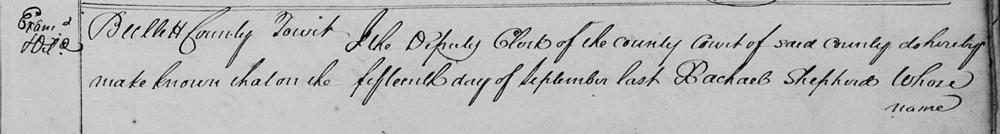 Exam.d
Bullitt County Towit I the Deputy Clerk of the county Court of said county do hereby
make known that on the fifteenth day of September last Rachael Shepherd Whose
name